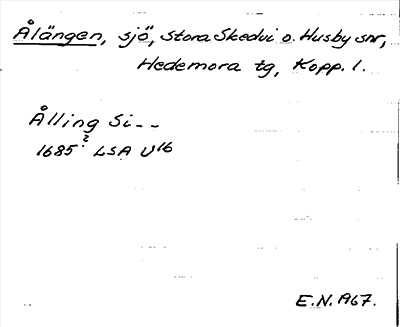 Ålängen, sjö, Stora Skedvi o. Husby snr,
Hedemora tg, Kopp. l.
Ålling Si--
1685? LSA U16
E.N. 1967.